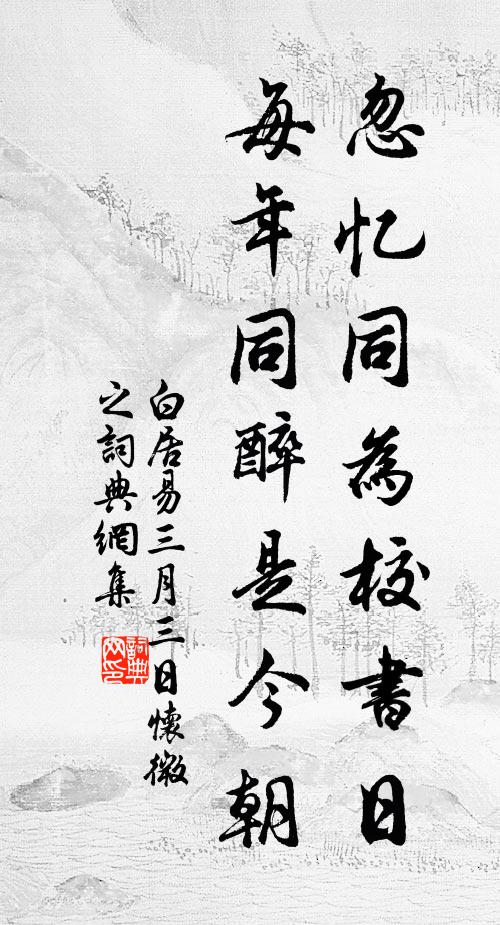 忽忆同為校書日
每年同醉是今朝
白居易三月三日懷微
之詞典網集
詞典
网印